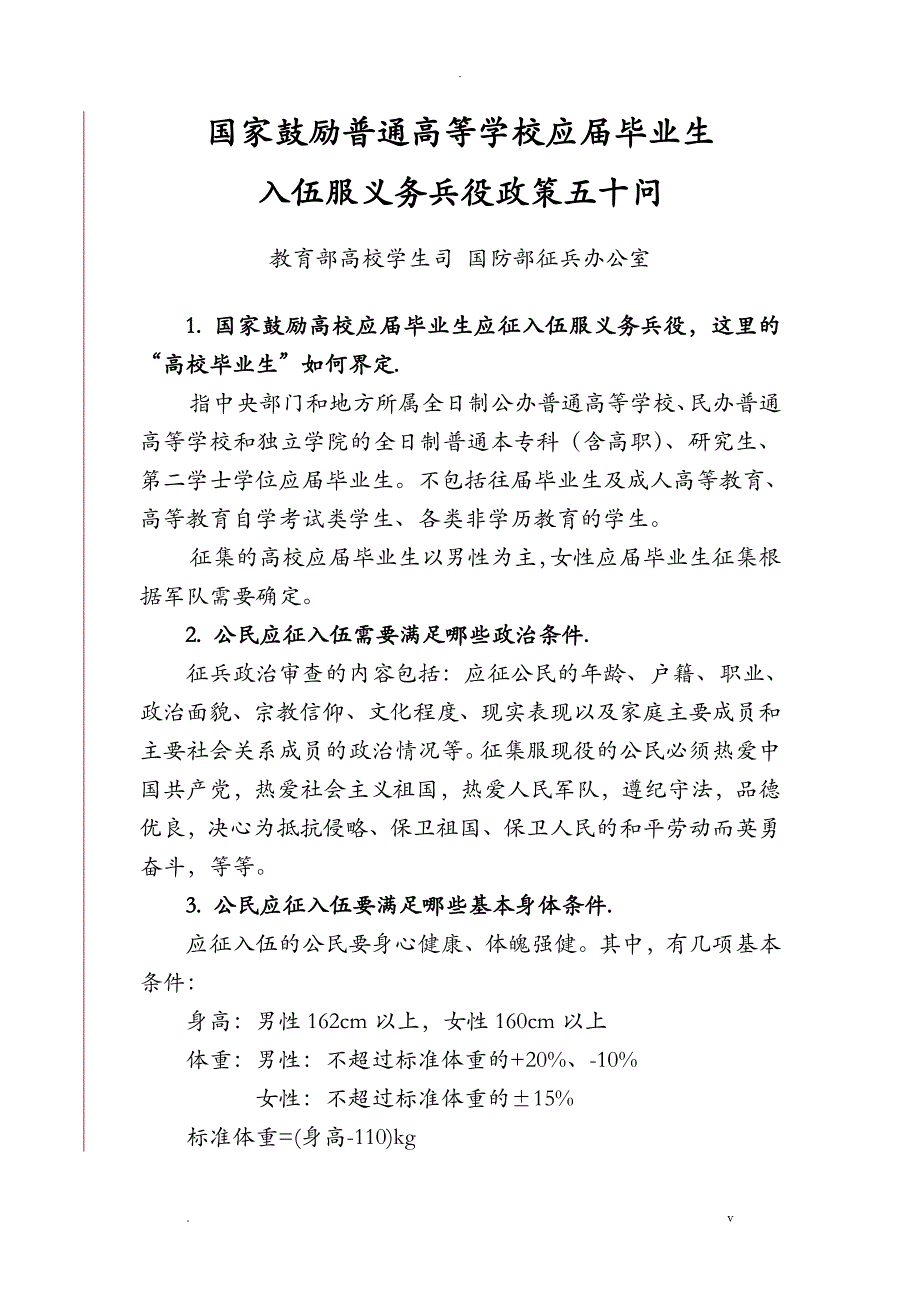 国家鼓励普通高等学校应届毕业生
入伍服义务兵役政策五十问
教育部高校学生司 国防部征兵办公室
1. 国家鼓励高校应届毕业生应征入伍服义务兵役，这里的
“高校毕业生”如何界定.
指中央部门和地方所属全日制公办普通高等学校、民办普通
高等学校和独立学院的全日制普通本专科（含高职）、研究生、
第二学士学位应届毕业生。不包括往届毕业生及成人高等教育、
高等教育自学考试类学生、各类非学历教育的学生。
征集的高校应届毕业生以男性为主，女性应届毕业生征集根
据军队需要确定。
2. 公民应征入伍需要满足哪些政治条件.
征兵政治审查的内容包括：应征公民的年龄、户籍、职业、
政治面貌、宗教信仰、文化程度、现实表现以及家庭主要成员和
主要社会关系成员的政治情况等。征集服现役的公民必须热爱中
国共产党，热爱社会主义祖国，热爱人民军队，遵纪守法，品德
优良，决心为抵抗侵略、保卫祖国、保卫人民的和平劳动而英勇
奋斗，等等。
3. 公民应征入伍要满足哪些基本身体条件.
应征入伍的公民要身心健康、体魄强健。其中，有几项基本
条件：
身高：男性 162cm 以上，女性 160cm 以上
体重：男性：不超过标准体重的+20%、-10%
女性：不超过标准体重的±15%
标准体重=(身高-110)kg
. v